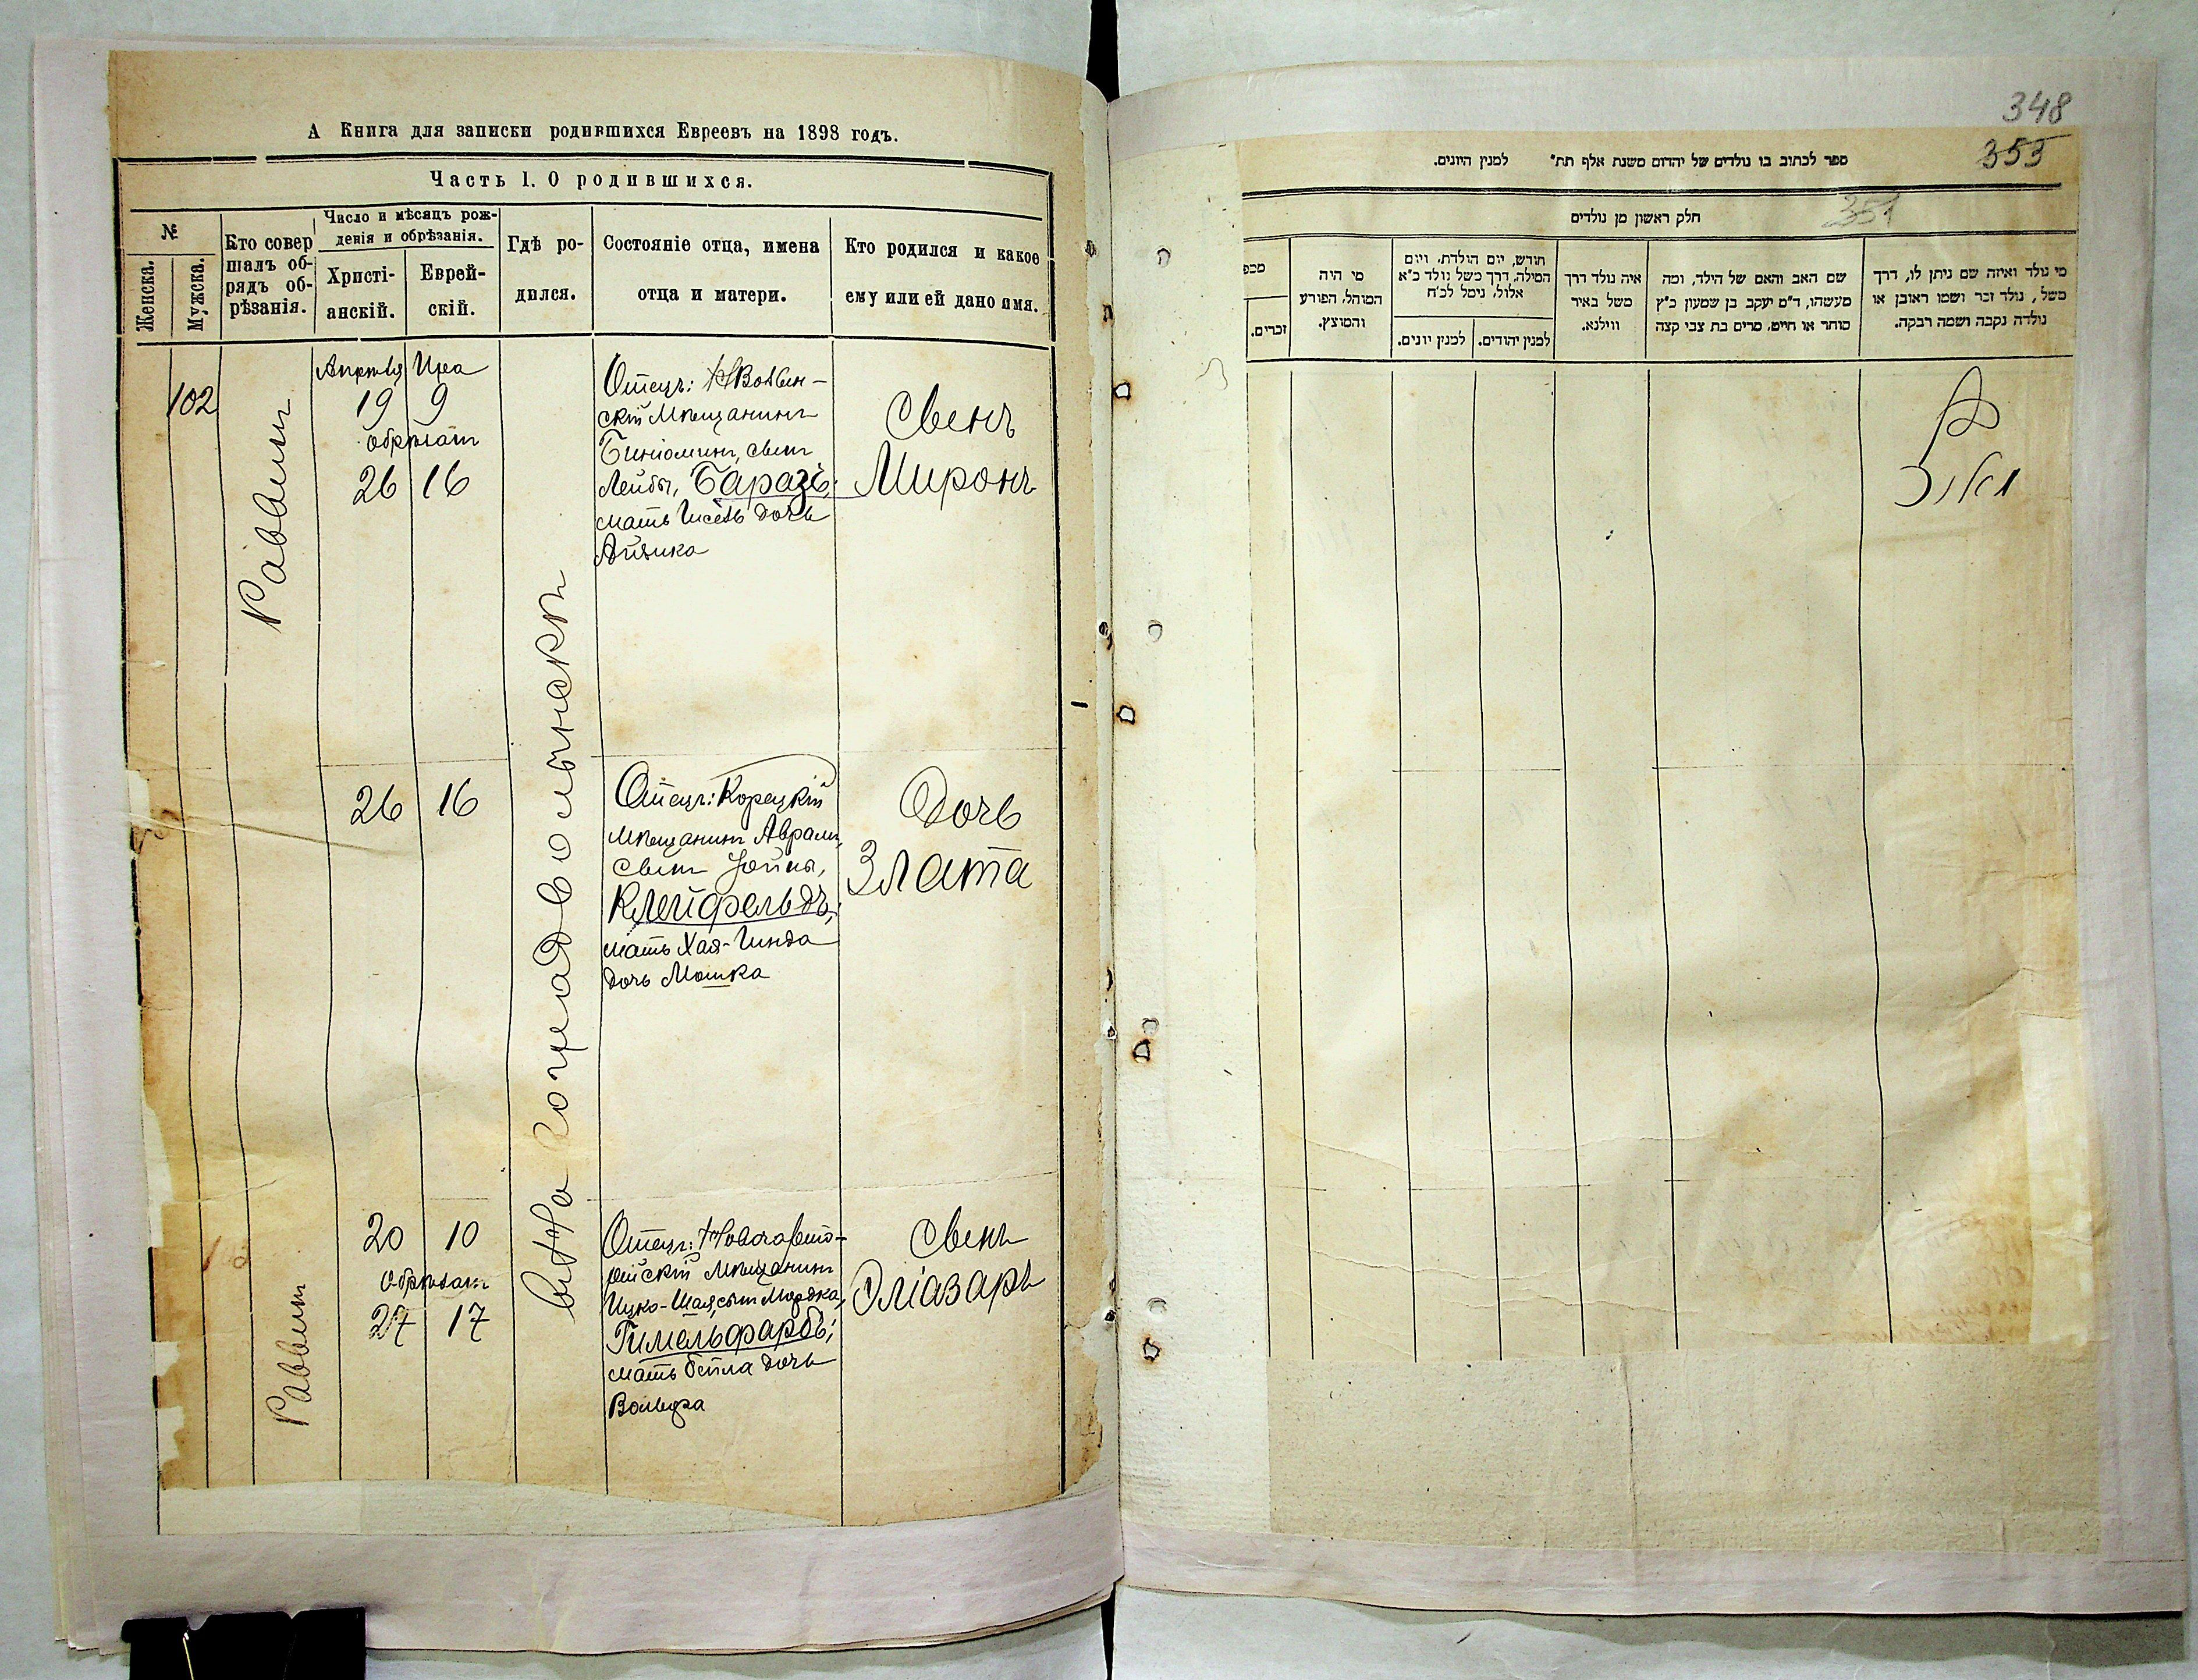 А Книга для записки родившихся Евреевъ на 1898 годъ.
Часть 1. О родившихся.
№
Женска.
Мужска.
Кто совер
шалъ об-
рядъ об-
рѣзанія.
Число и мѣсяцъ рож-
денія и обрѣзанія.
Христі-
анскій.
Еврей-
скій.
Гдѣ ро-
дился.
Состояніе отца, имена
отца и матери.
Кто родился и какое
ему или ей дано имя.
102
Раввинъ
Апрѣля Ира
19 9
обрѣзанъ
26 16
Отецъ:
скій Мѣщанинъ
Биніоминъ, сынъ
Лейбы, Баразъ;
мать дочь
Айзика
Сынъ
Миронъ
въ Новоградволынскѣ
26 16
Отецъ: Корецкій
мѣщанинъ Аврамъ,
сынъ Іойны,
Клейфельдъ;
мать Хая-Гинда
дочь Мошка
Дочь
Злата
Раввинъ
20 10
Обрѣзанъ
27 17
Отецъ:
мѣщанинъ
Ицко-Шая, сынъ Мордка,
Гимельфарбъ;
мать Бейла дочь
Вольфа
Сынъ
Эліазаръ
348
353
351
ספר לכתוב בו נולדים של יהדום משנת אלף תת" למנין היונים.
חלק ראשון מן נולדים
מי נולד ואיזה שם ניתן לו, דרך
משל, נולד זכר ושמו ראובן או
נולדה נקבה ושמה רבקה.
שם האב והאם של הילד, ומה
מעשהו, ד"מ יעקב בן שמעון כ"ץ
סוחר או חייט, מרים בת צבי קצה
איה נולד דרך
משל באיר
ווילנא.
חודש, יום הולדת, ויום
המילה, דרך משל נולד כ"א
אלול, נימל לכ"ח
למנין יהודים.
למנין יונים.
מי היה
המוהל, הפורע
והמוצץ.
מכפ
זכרים.